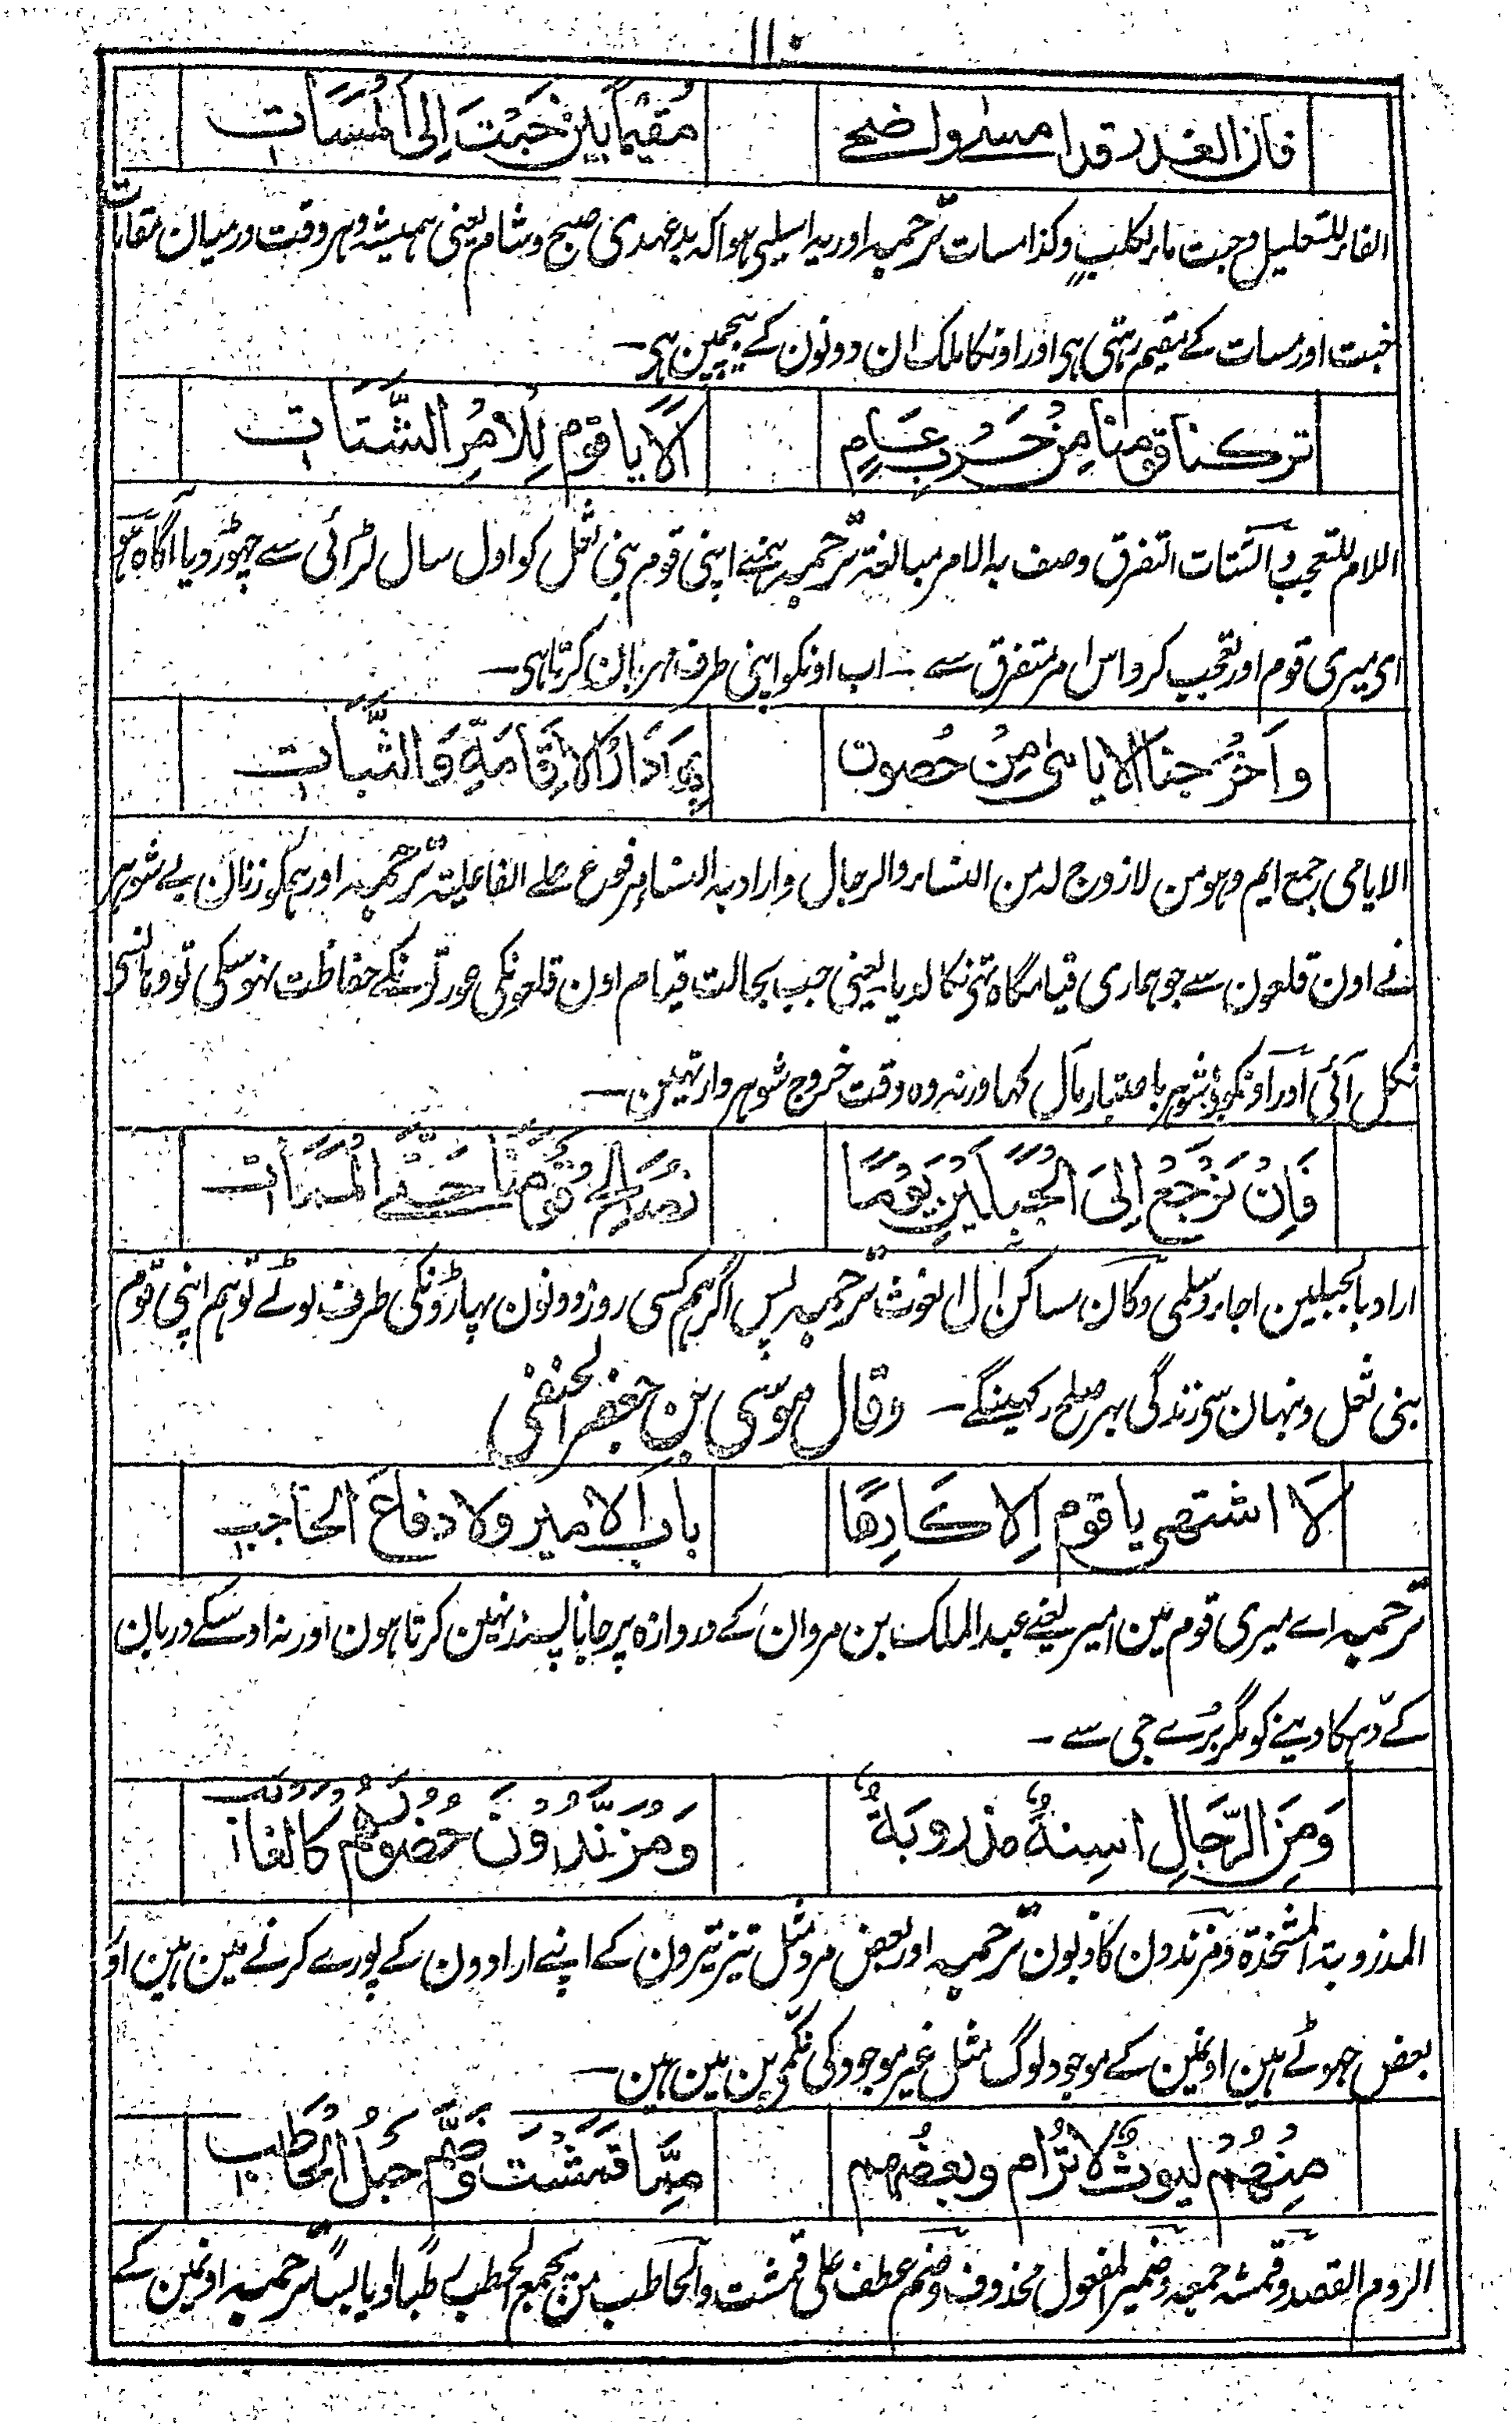 ۱۱۰
فان الغدر قد امسے واضحے مُقِیْمًا بَیْنَ خَبْتَ اِلَی الْمُسَاتِ
الفاء للتعلیل وخبت ماء لکلب وکذا مسات ترحمبہ اور یہ اسلیی ہوا کہ بدعہدی صبح وشام یعنی ہمیشہ وہر وقت درمیان مقامات
خبت اور مسات کے مقیم رہتی ہی اور اونکا ملک ان دونون کے بیچمین ہی—
ترکنا قومنا مِنْ حَرْبِ عَامٍ اَلَا یا قوم لِلْاَمْرِ الشَّتَاتِ
اللام للتعجب والشتات التفرق وصف بہ الامر مبالغۃ ترحمبہ ہمنے اپنی قوم بنی ثعل کو اول سال لڑائی سے چھوڑ دیا آگاہ ہو
ای میری قوم اور تعجب کرو اس امر متفرق سے — اب اونکو اپنی طرف مہربان کرتا ہی—
وَاَخْرَجنَا الایامٰی مِنْ حُصونٍ بِهَا دَارُ الْاِقَامَةِ وَالثَّبَاتِ
الایامی جمع ایم وہو من لا زوج لہ من النساء والرجال واراد بہ النساء مرفوع علے الفاعلیۃ ترحمبہ اور ہمکو زنان بے شوہر
نے اون قلعون سے جو ہماری قیامگاہ تہی نکالدیا یعنی جب بحالت قیام اون قلعونکی عورتونکے حفاظت نہوسکی تو وہانسے
نکل آئی اور اونکو بے شوہر باعتبار مآل کہا ورنہ وہ وقت خروج شوہر وار تہین—
فَاِنْ نَرْجِعْ اِلَی الْجَبَلَیْنِ یَوْمًا نُصَالِحْ قَوْمَنَا حَتّٰے الْمَمَاتِ
اراد بالجبلین اجاء وسلمی وکان مساکن ال الغوث ترحمبہ پس اگر ہم کسی روز دونون پہاڑونکی طرف لوٹے تو ہم اپنی قوم
بنی ثعل ونبہان سی زندگی بہر صلح رکہینگے— وقال موسی بن جعفر الحنفی
لَا اشتھی یا قوم اِلا کَارِهًا باب الامیر ولا دفاعَ الحاجبِ
ترحمبہ اے میری قوم مین امیر یعنے عبد الملک بن مروان کے دروازہ پر جانا پسند نہین کرتا ہون اور نہ اوسکے دربان
کے دہکا دینے کو مگر بُرے جی سے —
وَمِنَ الرِّجَالِ اسِنةٌ مذروبَةٌ وَمُزَنَّدُوْنَ حُضُوْرُهُمْ کَالْغائِبِ
المذروبۃ المشحذۃ ومزندون کاذبون ترحمبہ اور بعض مرد مثل تیز تیرون کے اپنے ارادون کے پورے کرنے مین ہین اور
بعض جہوٹے ہین اونمین کے موجود لوگ مثل غیر موجود کی نکمی پن مین ہین—
مِنْهُمْ لیوثٌ لاتُرَام وبعضُهم مِمَّا قَمَشْتَ وَضَمَّ حَبْلُ الْحَاطِبِ
الروم القصد وقمشہ جمعہ وضمیر المفعول محذوف وضم عطف علی قمشت والحاطب من یجمع الحطب رطبًا او یابسًا ترحمبہ اونمین کے